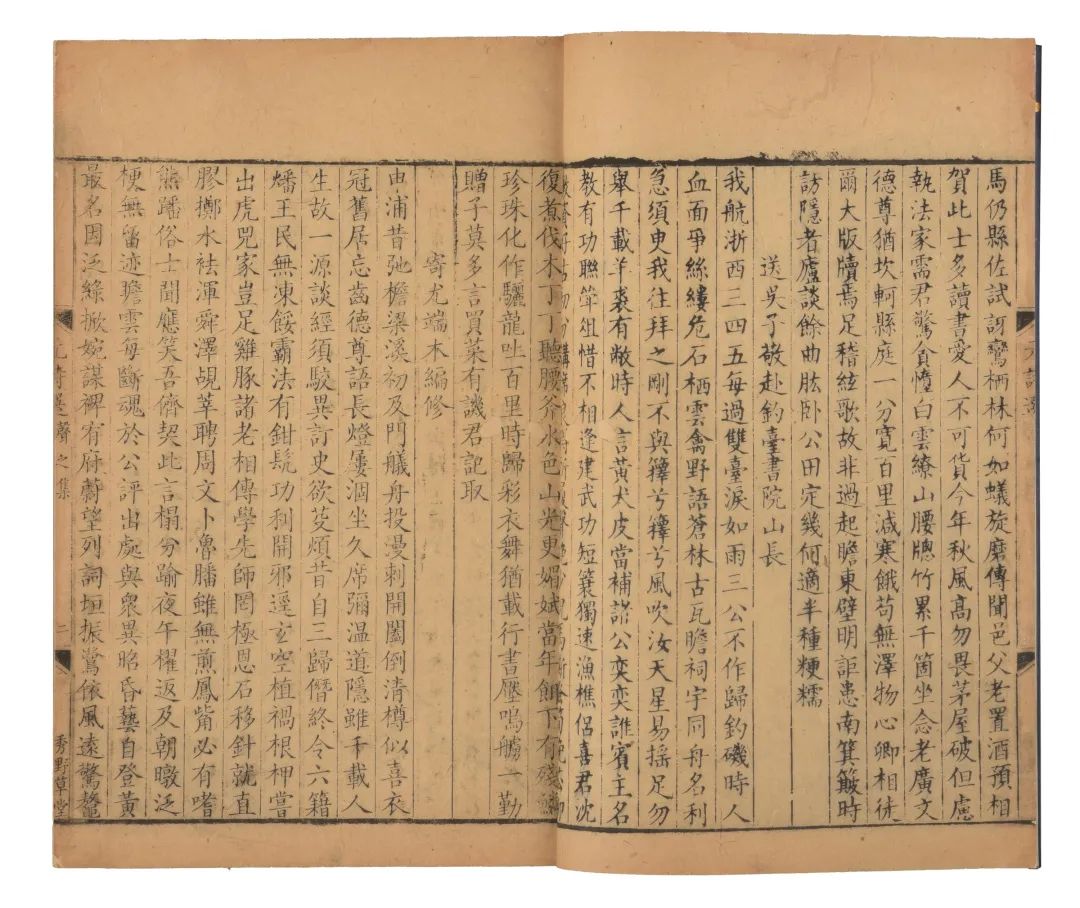 馬仍縣佐試訝鸞栖林何如蟻旋磨傳聞邑父老置酒預相
賀此士多讀書愛人不可貨今年秋風高勿畏茅屋破但慮
執法家需君驚負憤白雲繚山腰牕竹累千箇坐念老廣文
德尊猶坎軻縣庭一分寬百里減寒餓苟無澤物心卿相徒
爾大版牘焉足稽絃歌故非過起瞻東壁明詎患南箕簸時
訪隱者廬談餘曲肱卧公田定幾何適半種粳糯
送吳子敬赴釣臺書院山長
我航浙西三四五每過雙臺淚如雨三公不作歸釣磯時人
血面爭絲縷危石栖雲禽野語蒼林古瓦瞻祠宇同舟名利
急須臾我往拜之剛不與籜兮籜兮風吹汝天星易搖足勿
舉千載羊裘有敝時人言黃犬皮當補諸公奕奕誰賓主名
教有功聯斝俎惜不相逢建武功短簑獨速漁樵侶喜君沈
復煮伐木丁丁聽腰斧水色山光更媚嫵當年餌下有殘
珍珠化作驪龍吐百里時歸彩衣舞猶載行書壓鳴艣一勤
贈子莫多言買菜有譏君記取
寄尤端木編修
由浦昔弛檐梁溪初及門艤舟投漫刺開閣倒清樽似喜衣
冠舊居忘齒德尊語長燈屢涸坐久席彌温道隱雖千載人
生故一源談經須駁異訂史欲芟煩昔自三歸僭終令六籍
燔王民無凍餒霸法有鉗髡功利開邪逕玄空植禍根柙嘗
出虎兕家豈足雞豚諸老相傳學先師罔極恩石移針就直
膠擲水袪渾舜澤覘莘聘周文卜魯膰雖無煎鳳觜必有嗜
熊蹯俗士聞應笑吾儕契此言榻分踰夜午櫂返及朝暾泛
梗無留迹瞻雲每斷魂於公評出處與衆異昭昏藝自登黃
最名因泛綠掀婉謀裨宥府蔚望列詞垣振鷺依風遠驚鼇
元詩選
癸之集
二
秀野草堂